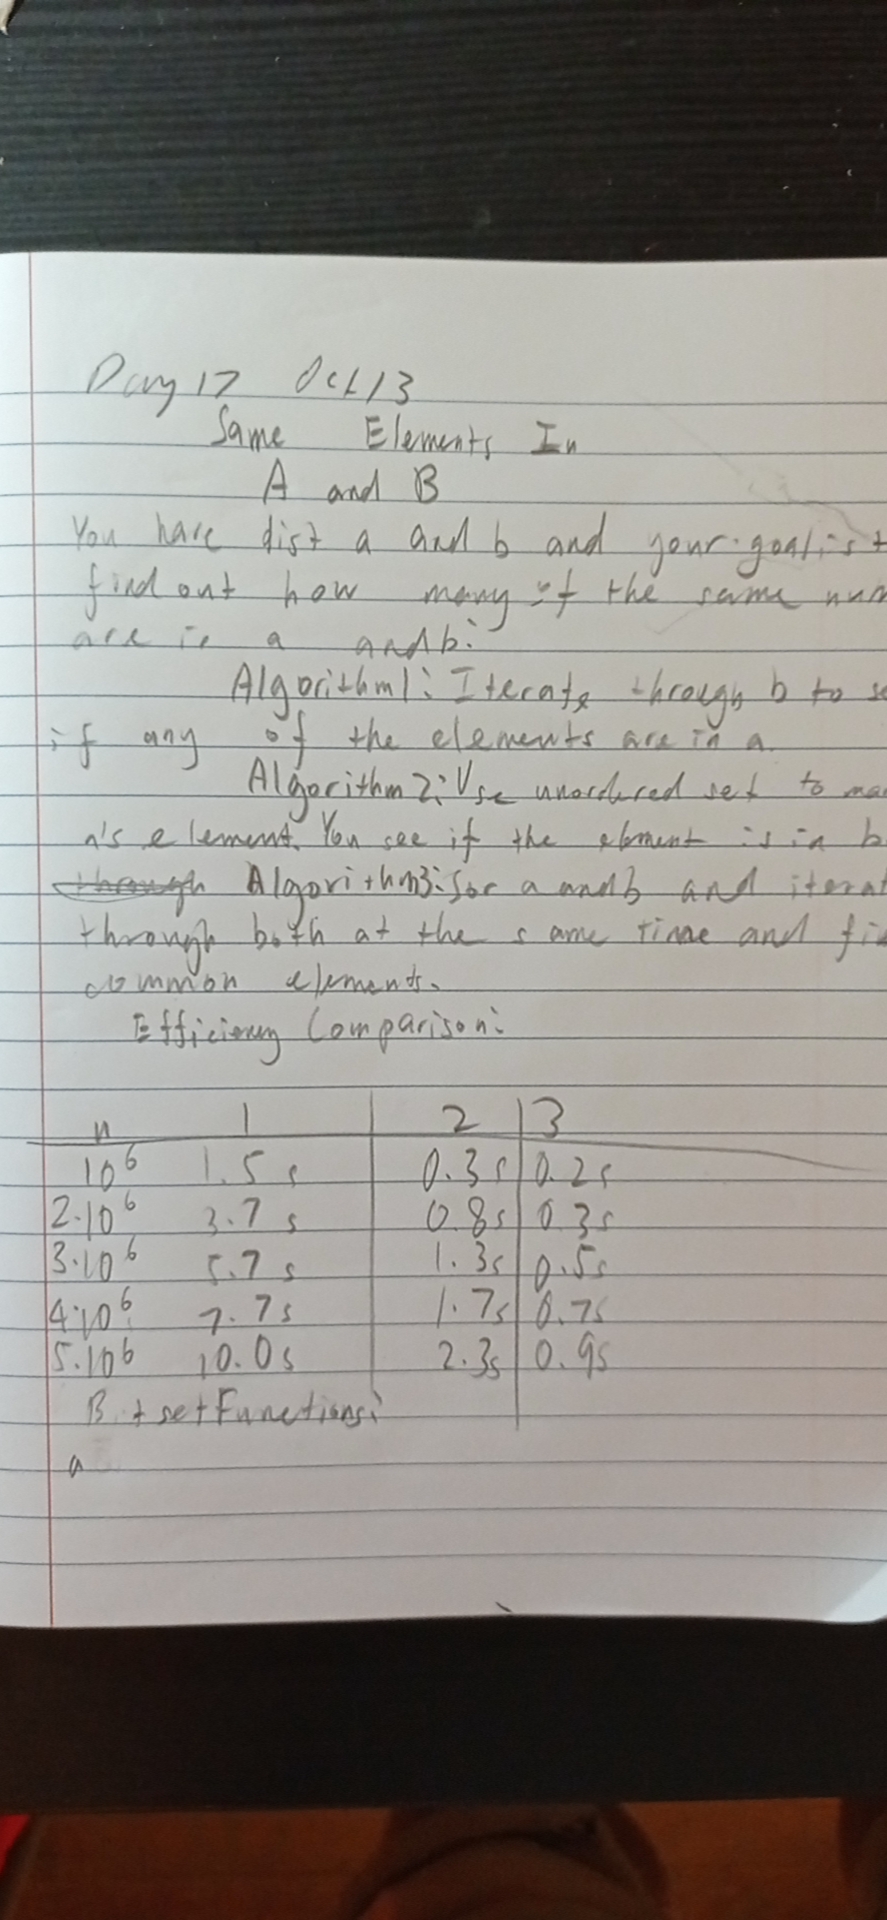 Day 17 Oct 13
Same Elements In
A and B
You have dist a and b and your goal is t
find out how many of the same num
are in a and b:
Algorithm1: Iterate through b to se
if any of the elements are in a.
Algorithm 2: Use unordered set to ma
a's element. You see if the element is in b
through Algorithm3: for a and b and iterat
through both at the same time and fi
common elements.
Efficiency Comparison:
n 1 2 3
10^6 1.5 s 0.3s 0.2s
2·10^6 3.7 s 0.8s 0.3s
3·10^6 5.7 s 1.3s 0.5s
4·10^6 7.7s 1.7s 0.7s
5·10^6 10.0s 2.3s 0.9s
set Functions:
a